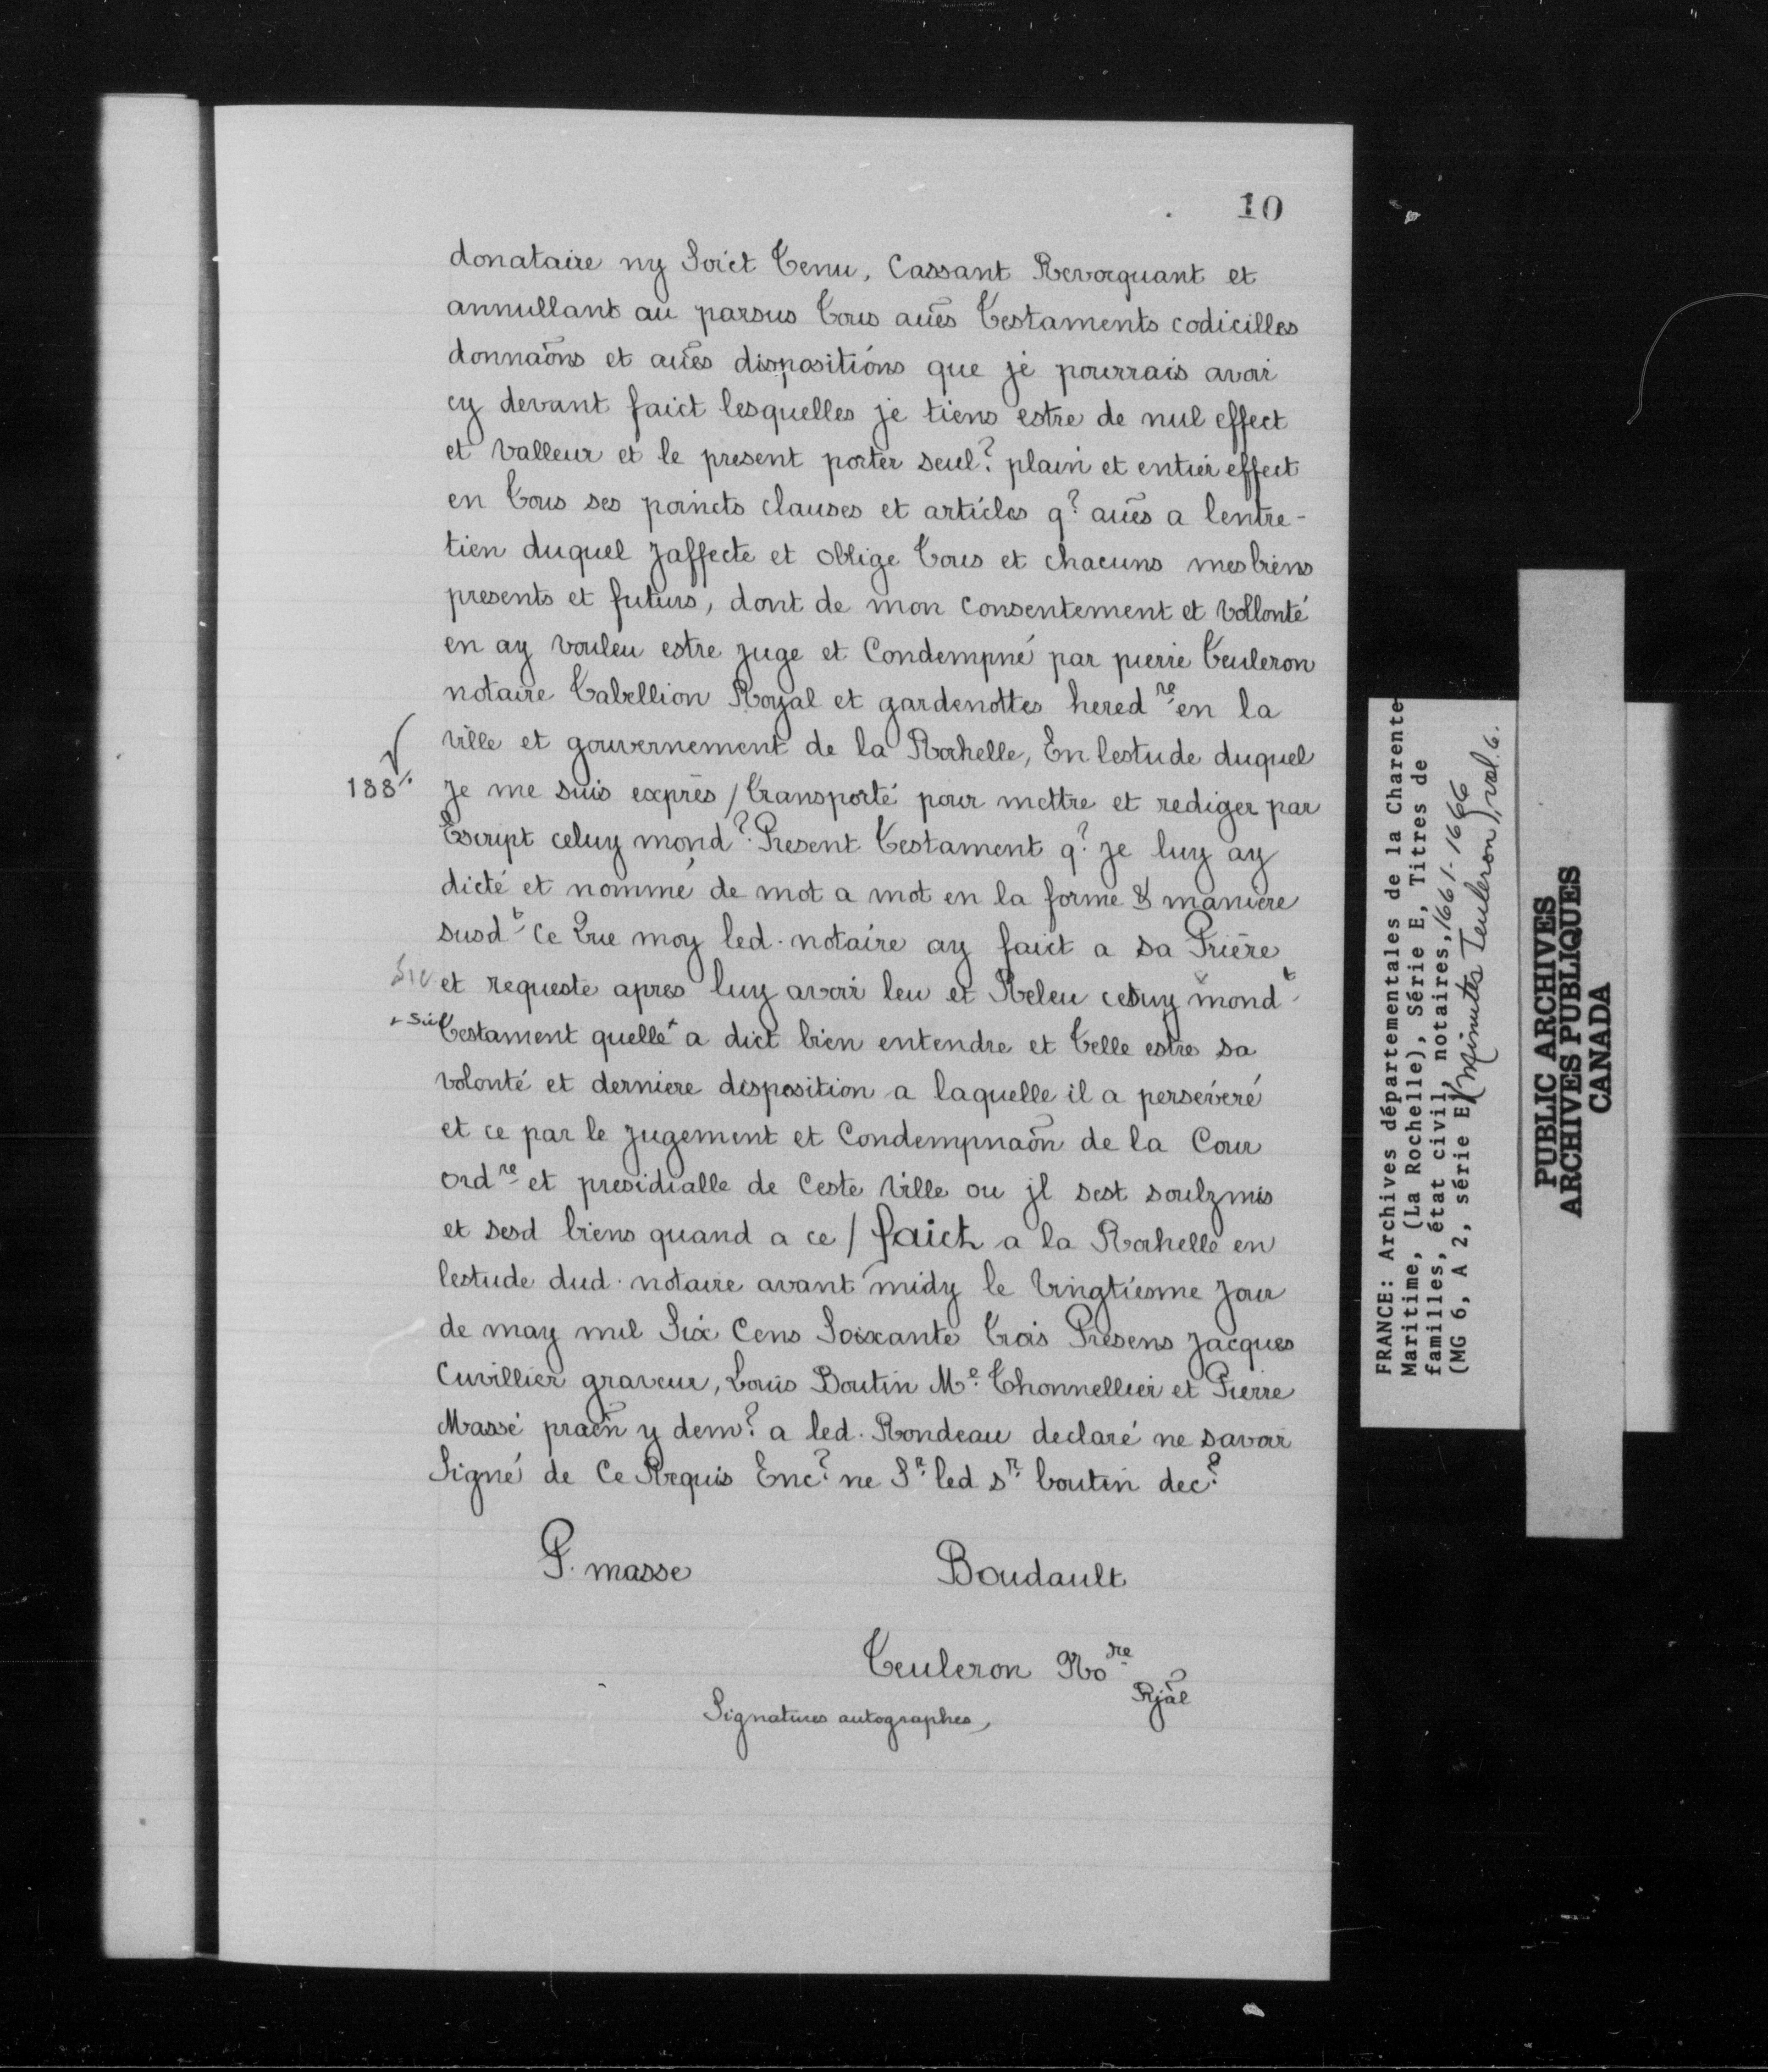 10
donataire ny Soict Tenu, Cassant Revocquant et
annullant au parsus Tous aũes Testaments codicilles
donnaõns et aũes dispositions que je pourrais avoir
cy devant faict lesquelles je tiens estre de nul effect
et Valleur et le present porter seul? plain et entier effect
en Tous ses poincts clauses et articles q? aũes a lentre-
tien duquel Jaffecte et oblige Tous et chacuns mes biens
presents et futurs, dont de mon consentement et Vollonté
en ay vouleu estre juge et Condempné par pierre Teuleron
notaire Tabellion Royal et gardenottes hered re en la
ville et gouvernement de la Rochelle, En lestude duquel
188 Je me suis exprès / Transporté pour mettre et rediger par
Escript celuy mond? Present Testament q? je luy ay
dicté et nommé de mot a mot en la forme & maniere
susd t Ce Que moy led. notaire ay faict a sa Prière
sic et requeste apres luy avoir leu et Releu celuy mond t
+ sic Testament quelle + a dict bien entendre et Telle estre sa
volonté et derniere disposition a laquelle il a perséveré
et ce par le Jugement et Condempnaõn de la Cour
ord re et presidialle de Ceste Ville ou jl sest soulzmis
et sesd biens quand a ce / faict a la Rochelle en
lestude dud. notaire avant midy le Vingtiesme Jour
de may mil Six Cens Soixante Trois Presens Jacques
Cuvillier graveur, Louis Boutin Me Thonnellier et Pierre
Massé praẽn y dem? a led. Rondeau declaré ne savoir
Signé de Ce Requis Enc? ne Sr led sr boutin dec?
P. masse Boudault
Teuleron No re
Rjãl
Signatures autographes
FRANCE: Archives départementales de la Charente
Maritime, (La Rochelle), Série E, Titres de
familles, état civil, notaires, 1661-1666
(MG 6, A 2, série E) (Minutes Teuleron), vol. 6.
PUBLIC ARCHIVES
ARCHIVES PUBLIQUES
CANADA